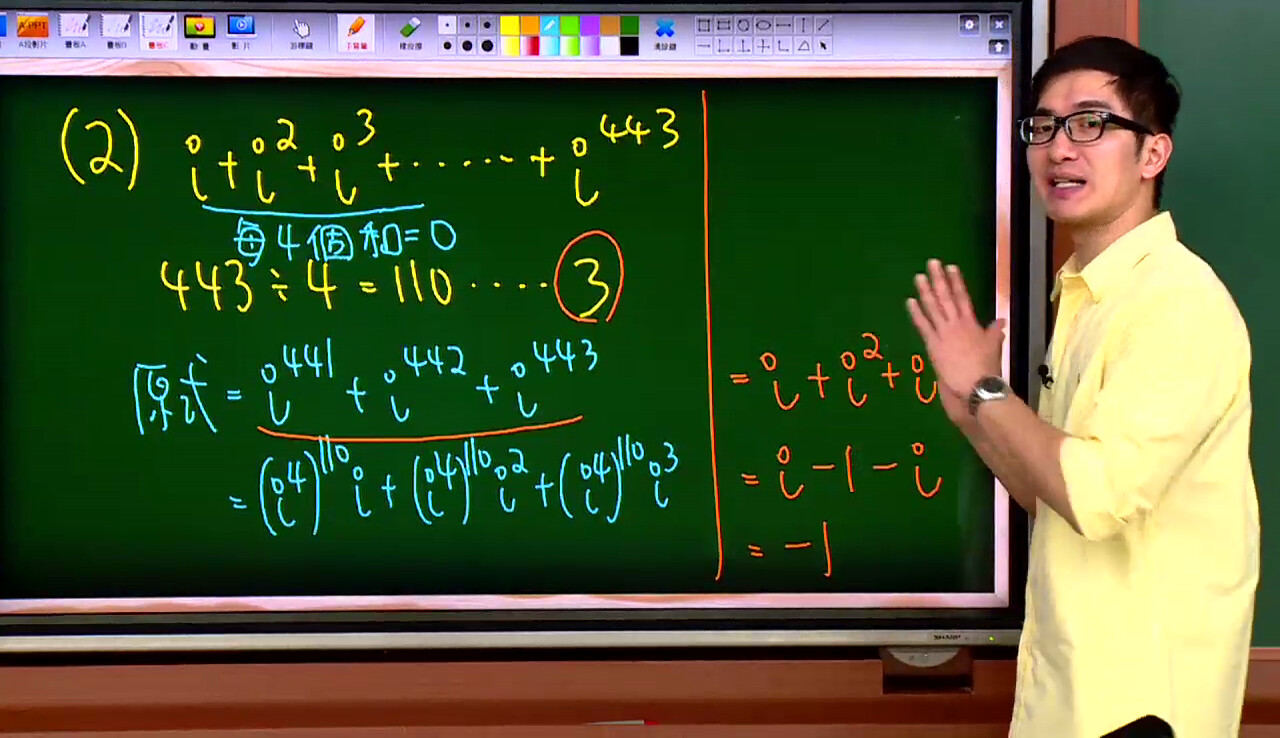 A-PPT
A投影片 畫板A 畫板B 畫板C 動畫 影片 游標鍵 手寫筆 橡皮擦 清除鍵
(2) i+i²+i³+······+i⁴⁴³
每4個和=0
443÷4=110····3
原式=i⁴⁴¹+i⁴⁴²+i⁴⁴³
=(i⁴)¹¹⁰i+(i⁴)¹¹⁰i²+(i⁴)¹¹⁰i³
=i+i²+i
=i-1-i
=-1
SHARP